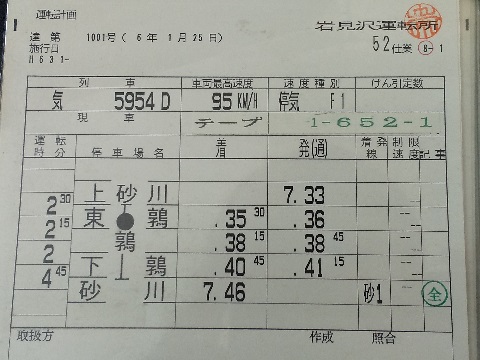 運転計画
達 第 1001号 ( 6 年 1 月 25 日)
岩見沢運転所
施行日
52 仕業 B-1
H 6 3 1-
列 車 車両最高速度 速度種別 けん引定数
気 5954 D 95 KM/H 停気 F1
現 車 テープ 1-652-1
運転時分 停車場名 着 発(通) 着発線 制限速度 記事
上 砂 川 7.33
2 30
東 鶉 .35 30 .36
2 15
鶉 .38 15 .38 45
2
下 鶉 .40 45 .41 15
4 45
砂 川 7.46 砂1 全
取扱方 作成 照合